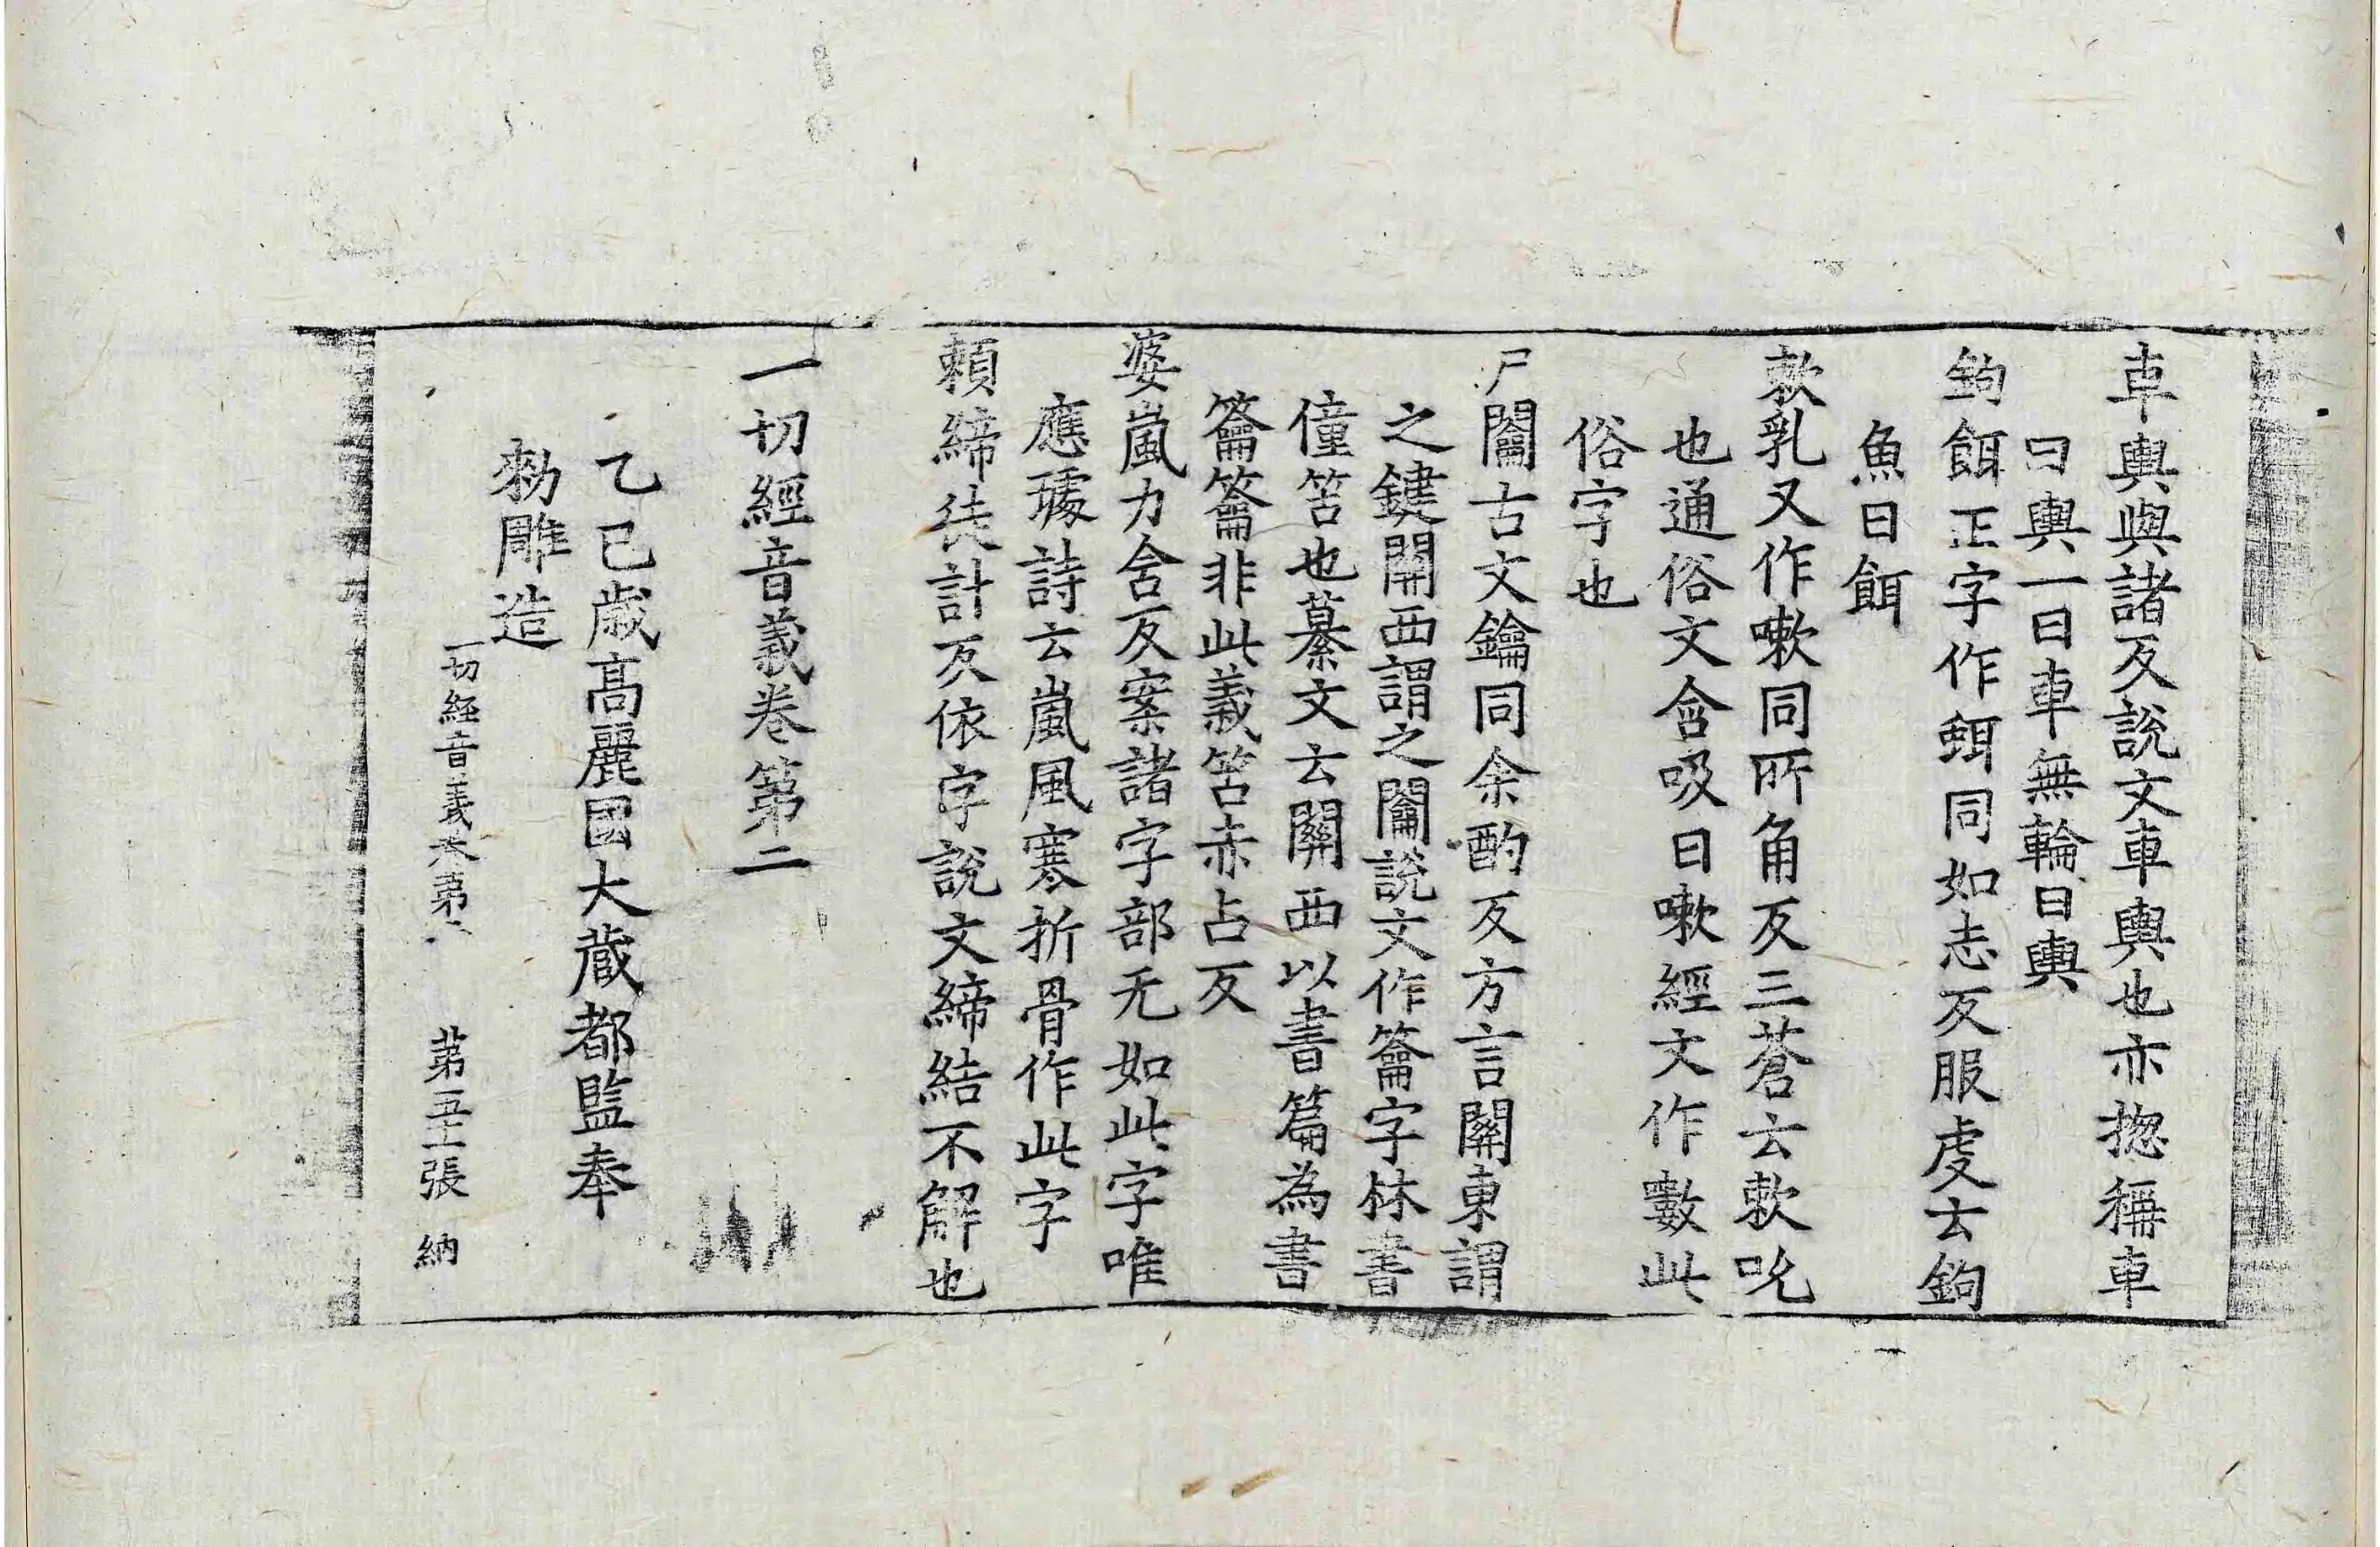 車輿與諸反說文車輿也亦揔稱車
曰輿一曰車無輪曰輿
鉤餌正字作䋙同如志反服虔云鉤
魚曰餌
欶乳又作嗽同所角反三蒼云欶吮
也通俗文含吸曰嗽經文作𠿝此
俗字也
戶闟古文鑰同余酌反方言關東謂
之鍵關西謂之闟說文作籥字林書
僮笘也纂文云關西以書篇為書
籥籥非此義笘赤占反
婆嵐力含反案諸字部无如此字唯
應璩詩云嵐風寒折骨作此字
頼締徒計反依字說文締結不解也
一切經音義卷第二
乙巳歳高麗國大藏都監奉
勑雕造
一切経音義 第 張 納